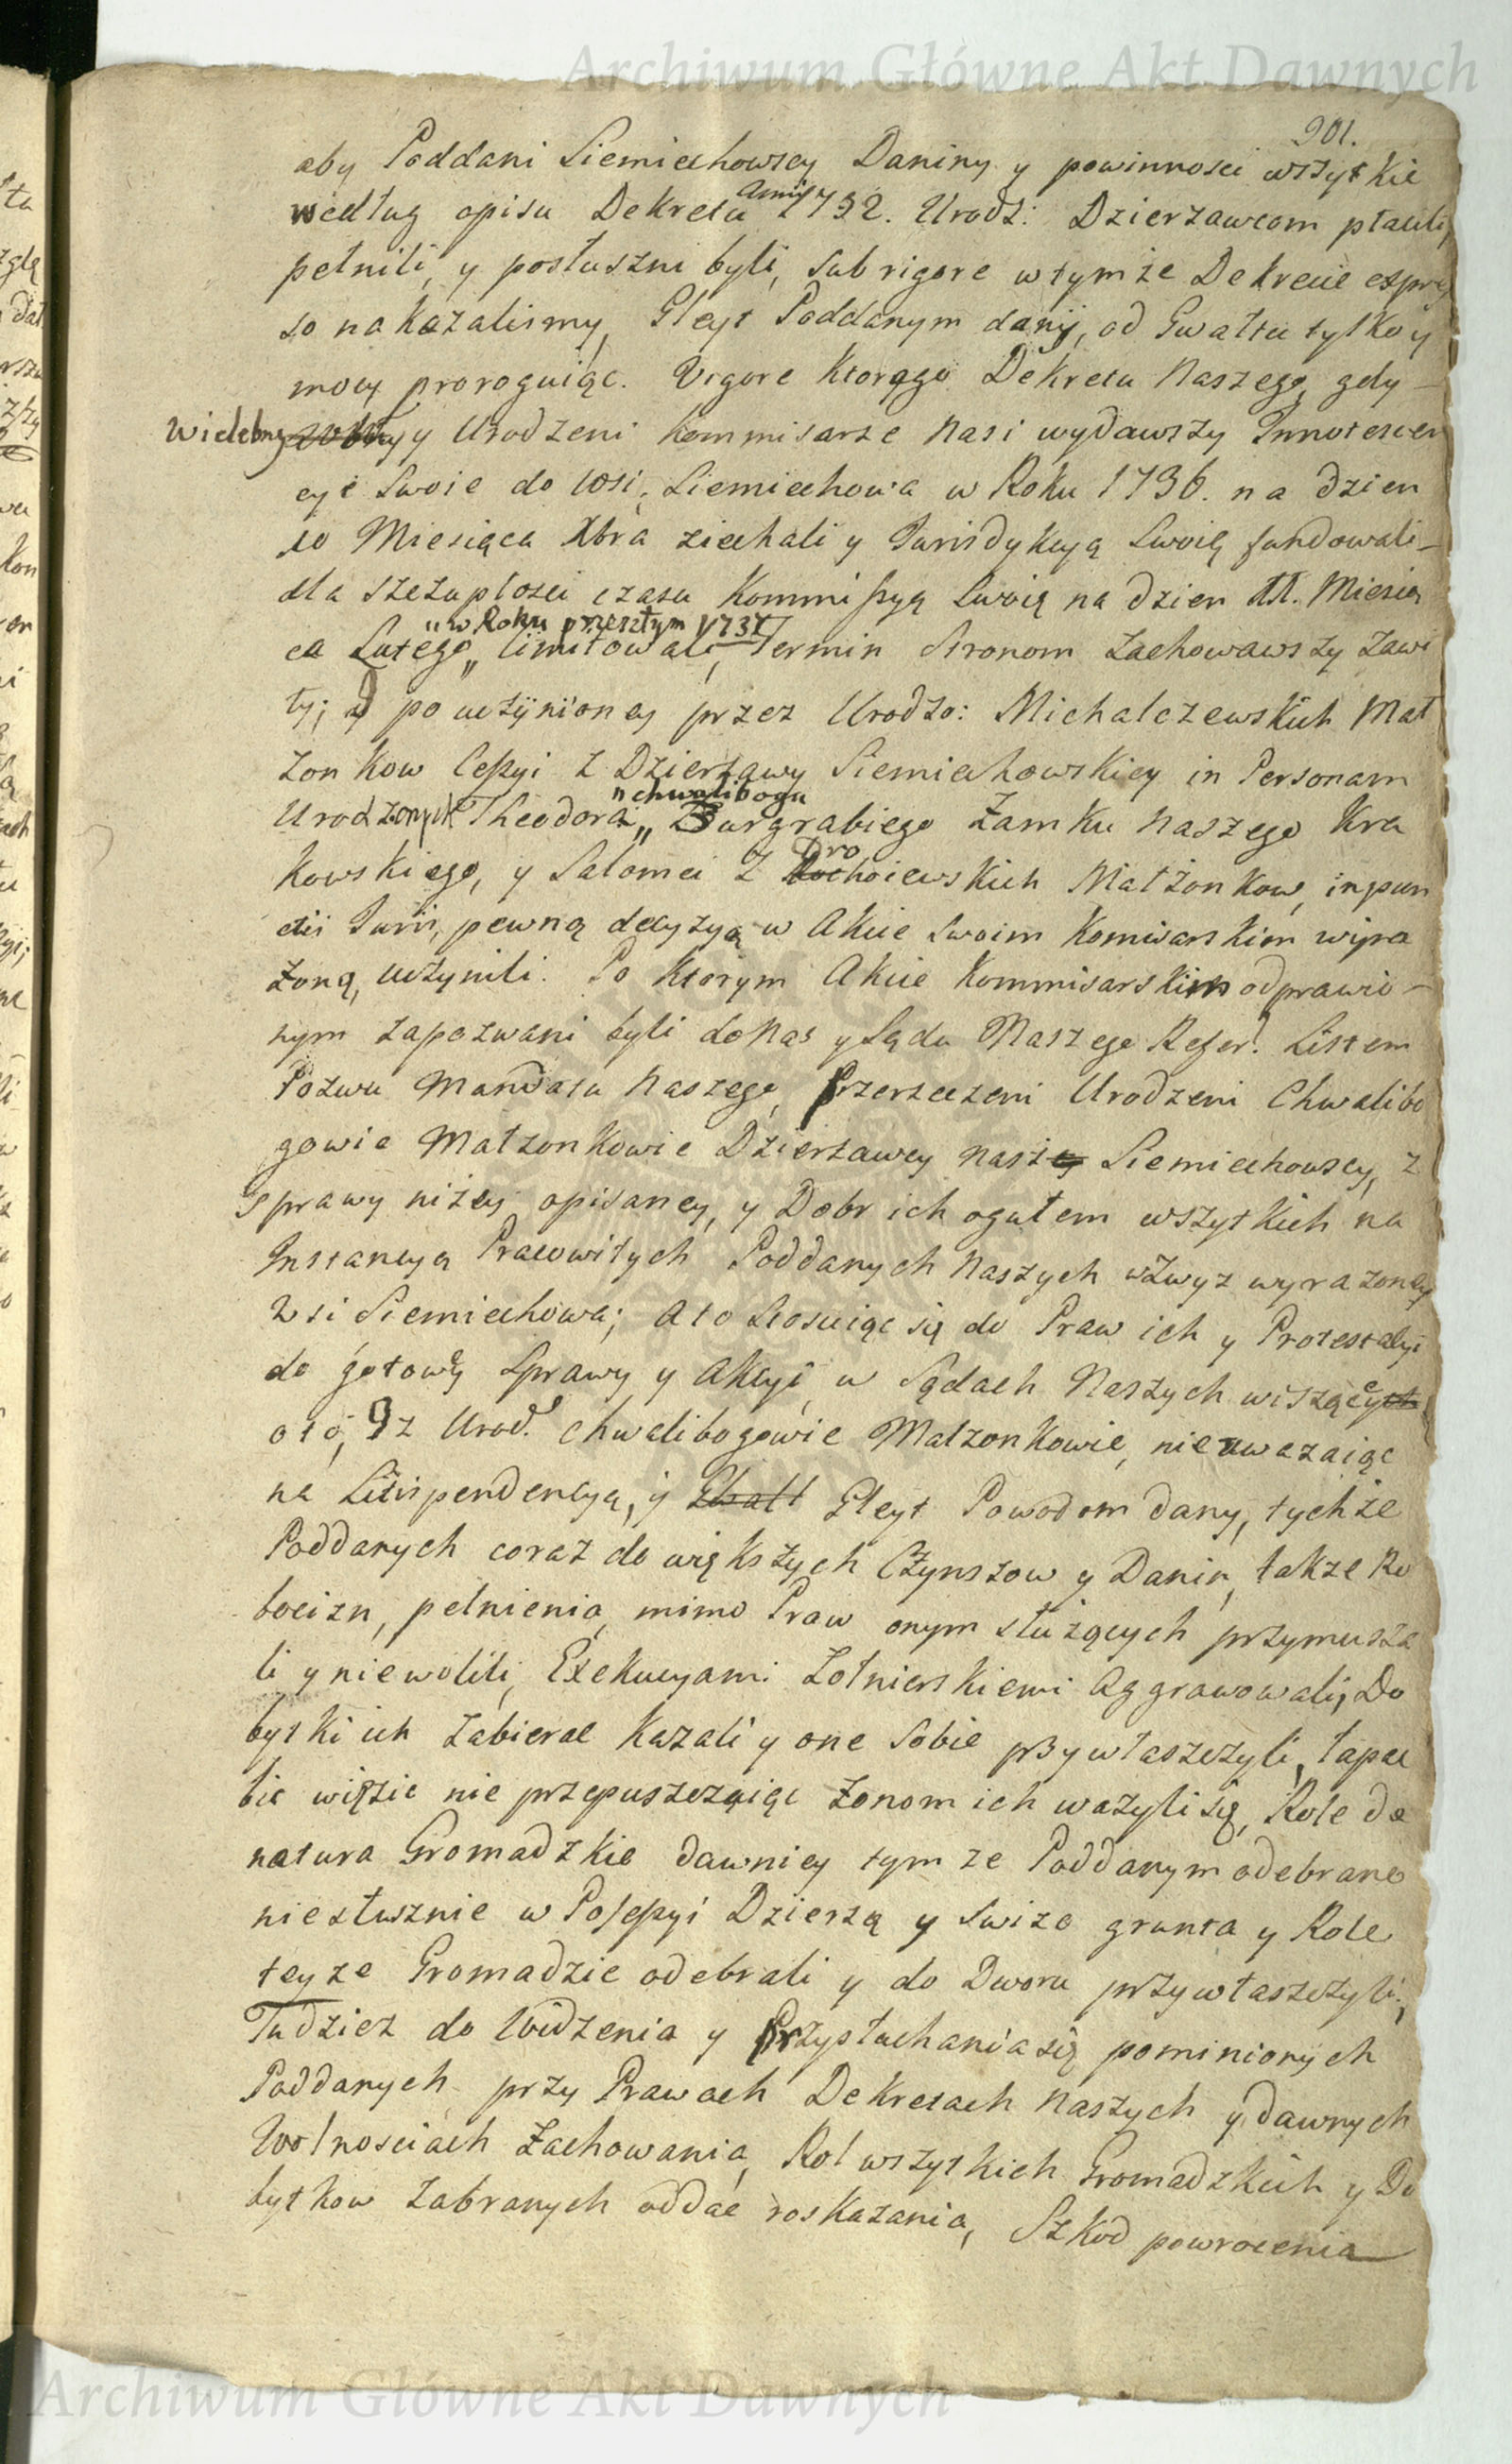 Archiwum Główne Akt Dawnych
901.
aby Poddani Siemiechowscy Daniny y powinnosci wszytkie
według opisu Dekretu Anni 1732. Urodz: Dzierzawcom płacili,
pełnili, y posłuszni byli, sub rigore w tymże Dekrecie expres
so nakazalismy, Gleyt Poddanym dany, od Gwałtu tylko y
mocy proroguiąc. Vigore ktorego Dekretu Naszego, gdy
Wielebny y Urodzeni Kommisarze Nasi wydawszy Innotescen
cye Swoie do wsi, Siemiechowa w Roku 1736. na dzien
10 Miesiąca Xbra ziechali y Jurisdykcyą Swoię fundowali
dla szczupłosci czasu Kommissyą Swoią na dzien 11. Miesią
ca Lutego „w Roku przeszłym 1737 limitowali, Termin Stronom zachowawszy zawi
ty; y po uczynioney przez Urodzo: Michalczewskich Mał
zonkow Cessyi z Dzierzawy Siemiechowskiey in Personam
Urodzonych Theodora „Chwaliboga Burgrabiego Zamku Naszego Kra
kowskiego, y Salomei z Drohoiewskich Małżonkow, in pun
cto Juris, pewną decyzyą w Akcie Swoim Komisarskim wyra
żoną, uczynili. Po ktorym Akcie Kommisarskim odprawio
nym zapozwani byli do Nas y Sądu Naszego Refer. Listem
Pozwu Mandatu Naszego, Przerzeczeni Urodzeni Chwalibo
gowie Małzonkowie Dzierzawcy Nasi Siemiechowscy, z
Sprawy niżey opisaney, y Dobr ich ogułem wszytkich na
Instancyą Pracowitych Poddanych Naszych wzwyz wyrazoney
Wsi Siemiechowa; A to stosuiąc się do Praw ich y Protestacyi
do gotowey Sprawy y Akcyi, w Sądach Naszych wiszącey
o to, Iz Urod. Chwalibogowie Małzonkowie, nieuwazaiąc
na Litispendencyą, y Gleyt Powodom dany, tychże
Poddanych coraz do większych Czynszow y Danin, także Ro
bocizn, pełnienia, mimo Praw onym służących przymusza
li y niewolili, Exekucyami Zołnierskiemi Aggrawowali, Do
bytki ich zabierac kazali y one Sobie przywłaszczyli, łapac
bic więzic nie przepuszczaiąc Zonom ich ważyli się, Role de
natura Gromadzkie dawniey tymze Poddanym odebrane
niesłusznie w Possessyi Dzierzą y swize grunta y Role
teyze Gromadzie odebrali y do Dworu przywłaszczyli;
Tudziez do Widzenia y Przysłuchania się pominionych
Poddanych przy Prawach Dekretach Naszych y dawnych
Wolnosciach Zachowania, Rol wszytkich Gromadzkich y Do
bytkow zabranych oddac roskazania, Szkod powrocenia
Archiwum Główne Akt Dawnych